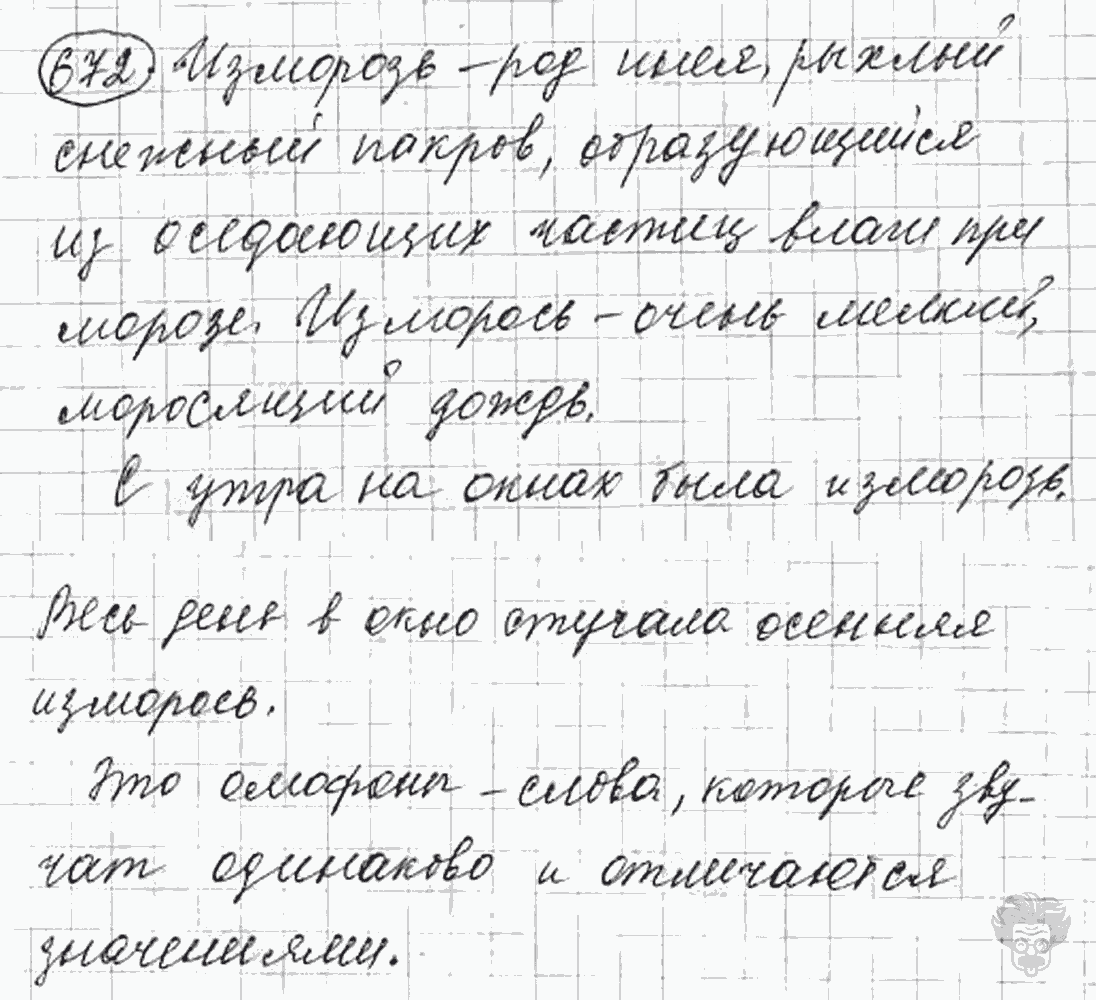 672. Изморозь – род инея, рыхлый
снежный пакров, образующийся
из оседающих частиц влаги при
морозе. Изморось – очень мелкий,
моросящий дождь.
С утра на окнах была изморозь.
Весь день в окно стучала осенняя
изморось.
Это омофоны – слова, которые зву-
чат одинаково и отличаются
значениями.